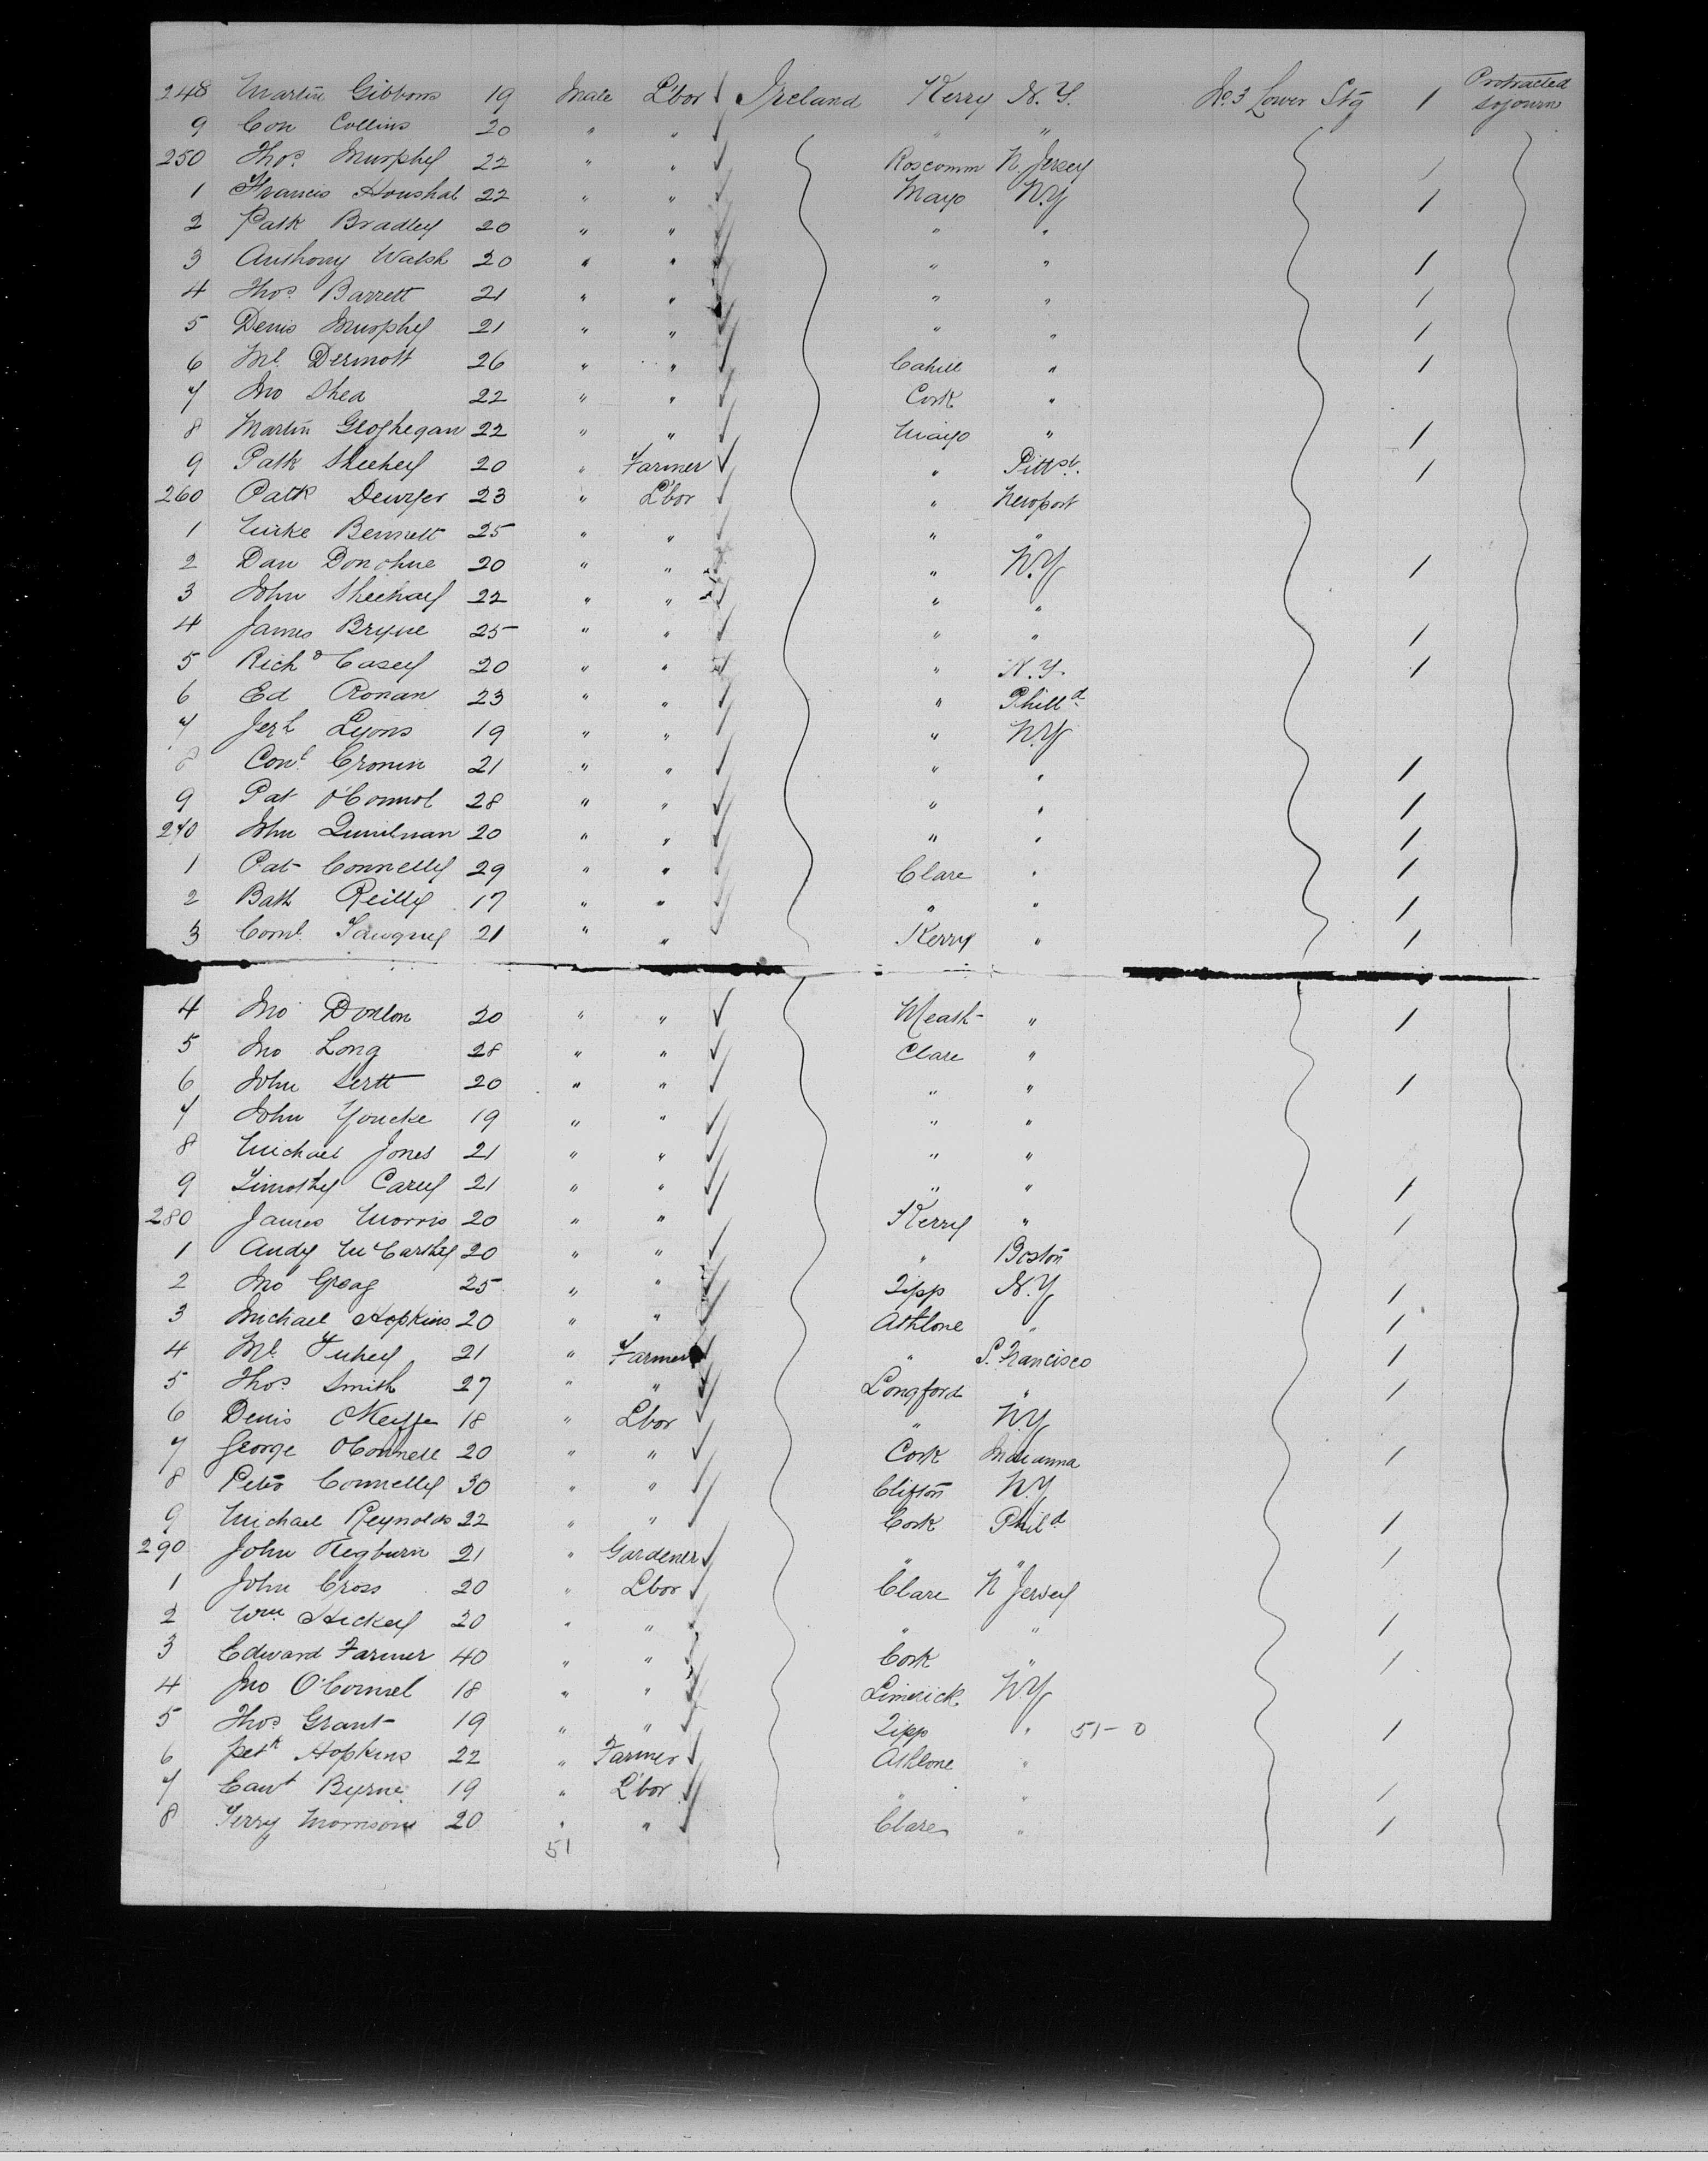 248 Martin Gibbons 19 Male L'bor Ireland Kerry N.Y. No 3 Lower Stg 1 Protracted sojourn
9 Con Collins 20 " " " "
250 Thos Murphy 22 " " Roscomm N. Jersey 1
1 Francis 22 " " Mayo N.Y 1
2 Patk Bradley 20 " " " "
3 Anthony Walsh 20 " " " " 1
4 Thos Barrett 21 " " " " 1
5 Denis Murphy 21 " " " " 1
6 Ml Dermott 26 " " Cahill " 1
7 Jno Shea 22 " " Cork "
8 Martin Geoghegan 22 " " Mayo " 1
9 Patk Sheehey 20 " Farmer " Pittsb. 1
260 Patk Dewyer 23 " L'bor " Newport
1 Luke Bennett 25 " " " "
2 Dan Donohue 20 " " " N.Y 1
3 John Sheehay 22 " " " "
4 James Bryne 25 " " " " 1
5 Richd Casey 20 " " " N.Y. 1
6 Ed Ronan 23 " " " Philld
7 Jerh Lyons 19 " " " N.Y
8 Conl Cronin 21 " " " " 1
9 Pat O'Connol 28 " " " " 1
270 John Quinlinan 20 " " " " 1
1 Pat Connelly 29 " " Clare " 1
2 Bath Reilly 17 " " " " 1
3 Cornl 21 " " Kerry " 1
4 Jno Donlon 20 " " Meath " 1
5 Jno Long 28 " " Clare "
6 John 20 " " " " 1
7 John Youcke 19 " " " "
8 Michael Jones 21 " " " "
9 Timothy Carey 21 " " " " 1
280 James Morris 20 " " Kerry " 1
1 Andy McCarthy 20 " " " Boston
2 Jno 25 " " Tipp N.Y 1
3 Michael Hopkins 20 " " Athlone " 1
4 Ml Tuhey 21 " Farmer " S. Francisco 1
5 Thos Smith 27 " " Longford " 1
6 Denis OKeiffe 18 " Lbor " N.Y
7 George OConnell 20 " " Cork Indianna 1
8 Peter Connelly 30 " " Clifton N.Y
9 Michael Reynolds 22 " " Cork Phild 1
290 John Hegburn 21 " Gardener " " 1
1 John Cross 20 " Lbor Clare N Jersey
2 Wm Hickey 20 " " " " 1
3 Edward Farmer 40 " " Cork " 1
4 Jno O'Connel 18 " " Limerick N.Y
5 Thos Grant 19 " " Tipp " 51-0 1
6 Petk Hopkins 22 " Farmer Athlone "
7 Byrne 19 " L'bor " " 1
8 Terry Morrison 20 " " Clare " 1
51